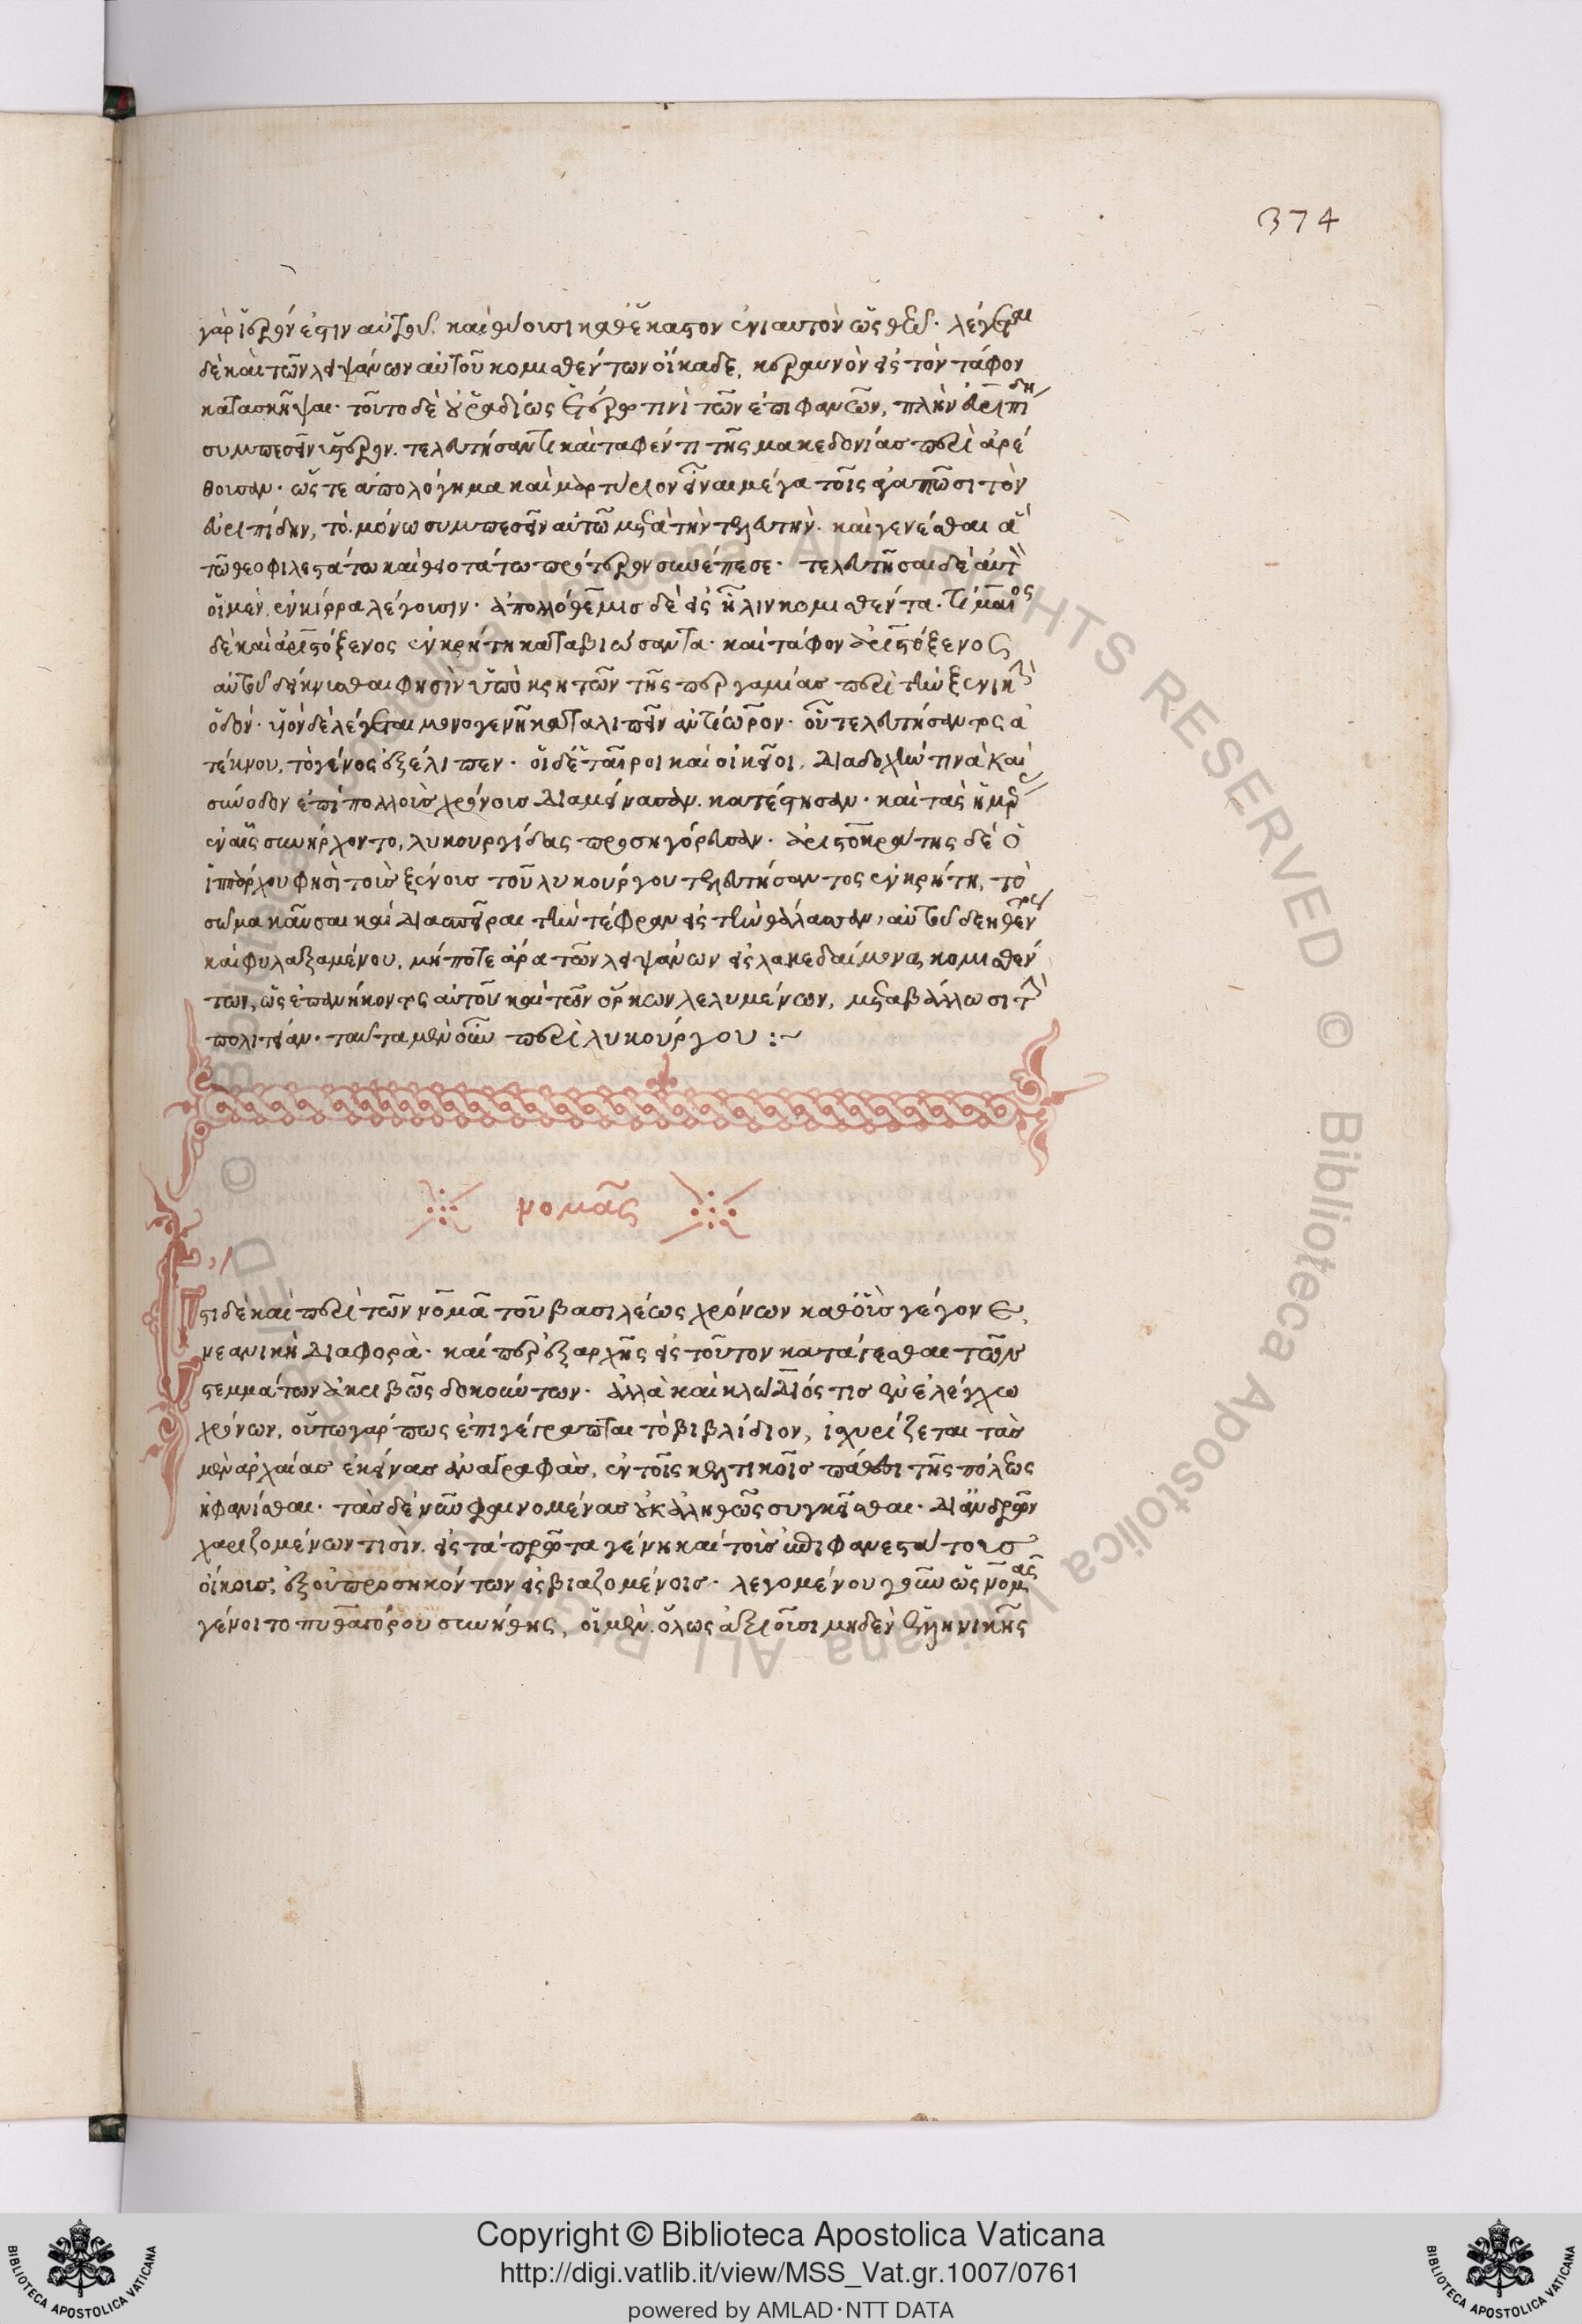 374
γὰρ ἱερόν ἐστιν αὐτοῦ. καὶ θύουσι καθ' ἕκαστον ἐνιαυτὸν ὡς θεῷ. λέγεται
δὲ καὶ τῶν λειψάνων αὐτοῦ κομισθέντων οἴκαδε, κεραυνὸν εἰς τὸν τάφον
κατασκῆψαι. τοῦτο δὲ οὐ ῥαδίως ἑτέρῳ τινὶ τῶν ἐπιφανῶν, πλὴν εὐριπίδη
συμπεσεῖν ὕστερον. τελευτήσαντι καὶ ταφέντι τῆς μακεδονίας περὶ ἀρέ
θουσαν. ὥστε ἀπολόγημα καὶ μαρτύριον εἶναι μέγα τοῖς ἀγαπῶσι τὸν
εὐριπίδην, τὸ μόνω συμπεσεῖν αὐτῶ μετὰ τὴν τελευτὴν. καὶ γενέσθαι ἃ
τῶ θεοφιλεστάτω καὶ ὁσιοτάτω πρότερον συνέπεσε. τελευτῆσαι δὲ αὐτὸν
οἱ μὲν ἐν κίρρα λέγουσιν. ἀπολλόθεμις δὲ εἰς ἦλιν κομισθέντα. τίμαιος
δὲ καὶ ἀριστόξενος ἐν κρήτη καταβιώσαντα. καὶ τάφον ἀριστόξενος
αὐτοῦ δείκνυσθαι φησὶν ὑπὸ κρητῶν τῆς περγαμίας περὶ τὴν ξενικὴν
ὁδόν. υἱὸν δὲ λέγεται μονογενῆ καταλιπεῖν ἀντίωρον. οὗ τελευτήσαντος ἀ
τέκνου, τὸ γένος ἐξέλιπεν. οἱ δ' ἑταῖροι καὶ οἰκεῖοι, διαδοχήν τινα καὶ
σύνοδον ἐπὶ πολλοὺς χρόνους διαμείνασαν. κατέστησαν. καὶ τὰς ἡμέρας
ἐν αἷς συνήρχοντο, λυκουργίδας προσηγόρευσαν. ἀριστοκράτης δὲ ὁ
ἱππάρχου φησὶ τοὺς ξένους τοῦ λυκούργου τελευτήσαντος ἐν κρήτη, τὸ
σῶμα καῦσαι καὶ διασπεῖραι τὴν τέφραν εἰς τὴν θάλασσαν, αὐτοῦ δεηθέν
καὶ φυλαξαμένου, μή ποτε ἄρα τῶν λειψάνων εἰς λακεδαίμονα κομισθέν
των, ὡς ἐπανήκοντος αὐτοῦ καὶ τῶν ὅρκων λελυμένων, μεταβάλλωσι τὴν
πολιτείαν. ταῦτα μὲν οὖν περὶ λυκούργου :~
νομᾶς
Ἔστι δὲ καὶ περὶ τῶν νομᾶ τοῦ βασιλέως χρόνων καθ' οὓς γέγονε,
νεανικὴ διαφορὰ. καίπερ ἐξ ἀρχῆς εἰς τοῦτον κατάγεσθαι τῶν
στεμμάτων ἀκριβῶς δοκούντων. ἀλλὰ καὶ κλώδιός τις ἐν ἐλέγχω
χρόνων, οὕτω γάρ πως ἐπιγέγραπται τὸ βιβλίδιον, ἰσχυρίζεται τὰς
μὲν ἀρχαίας ἐκείνας ἀναγραφὰς, ἐν τοῖς κελτικοῖς πάθεσι τῆς πόλεως
ἠφανίσθαι. τὰς δὲ νῦν φαινομένας οὐκ ἀληθῶς συγκεῖσθαι. δι' ἀνδρῶν
χαριζομένων τισὶν. εἰς τὰ πρῶτα γένη καὶ τοὺς ἐπιφανεστάτους
οἴκους, ἐξ οὐ προσηκόντων εἰσβιαζομένοις. λεγομένου γοῦν ὡς νομᾶς
γένοιτο πυθαγόρου συνήθης, οἱ μὲν ὅλως ἀξιοῦσι μηδὲν ἑλληνικῆς
Copyright © Biblioteca Apostolica Vaticana
http://digi.vatlib.it/view/MSS_Vat.gr.1007/0761
powered by AMLAD·NTT DATA
BIBLIOTECA APOSTOLICA VATICANA
BIBLIOTECA APOSTOLICA VATICANA